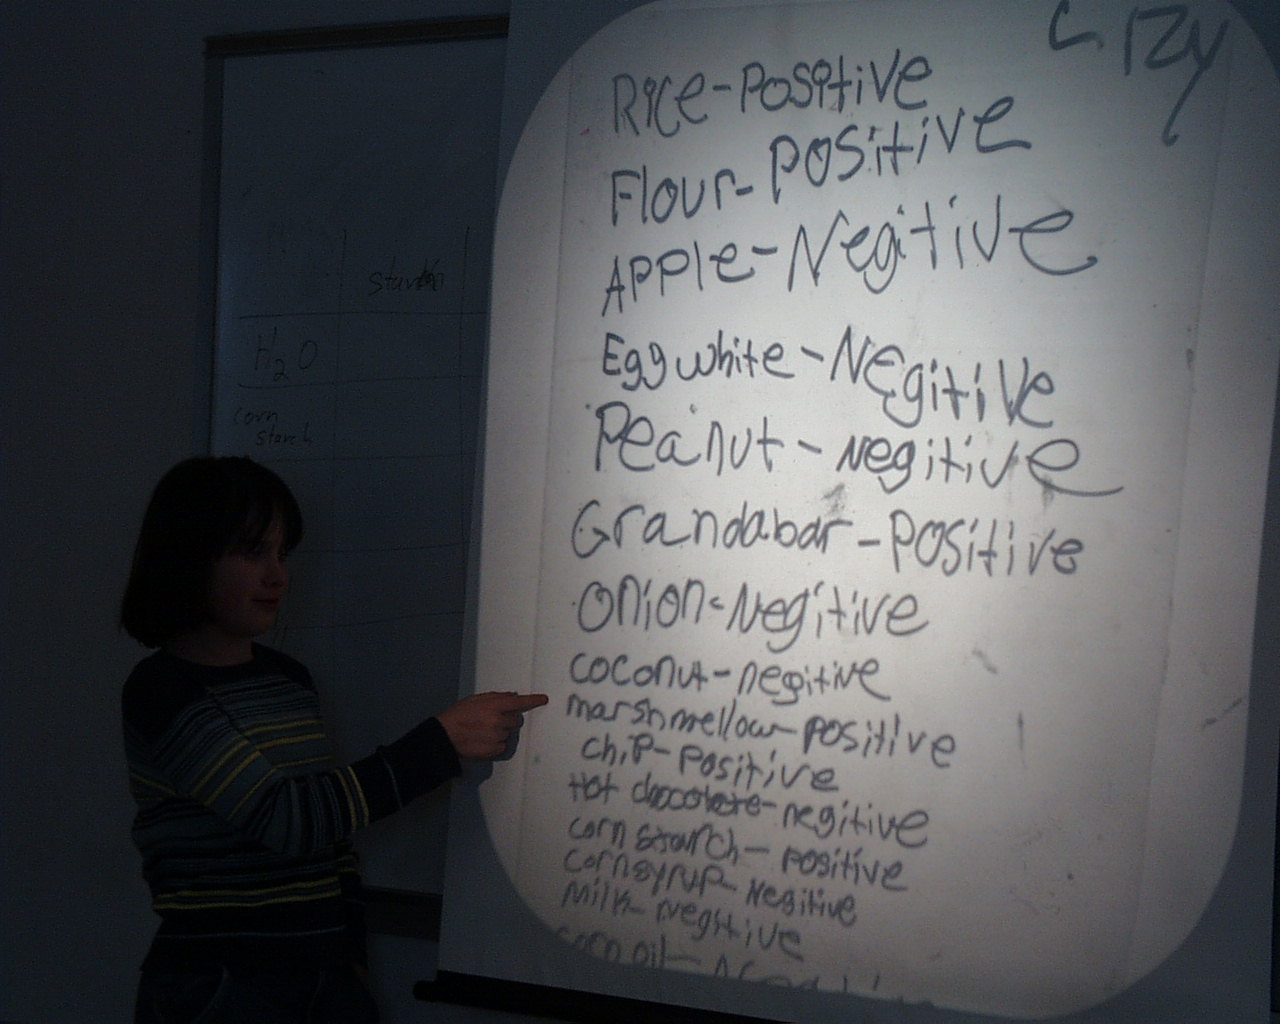 Rice-Positive
Flour-Positive
APPle-Negitive
Egg white-Negitive
Peanut-Negitive
Grandabar-Positive
Onion-Negitive
coconut-negitive
marshmellow-positive
chip-positive
Hot chocolate-negitive
corn starch-positive
corn syrup-Negitive
Milk-negitive
corn oil-
H2O
corn
starch